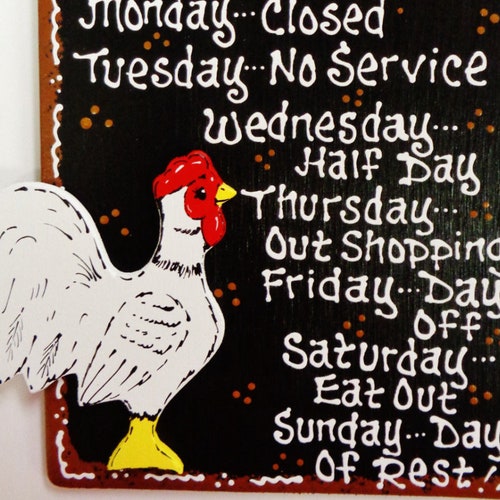 Monday...Closed
Tuesday...No Service
Wednesday...
Half Day
Thursday...
Out Shopping
Friday...Day
Off
Saturday...
Eat Out
Sunday...Day
Of Rest